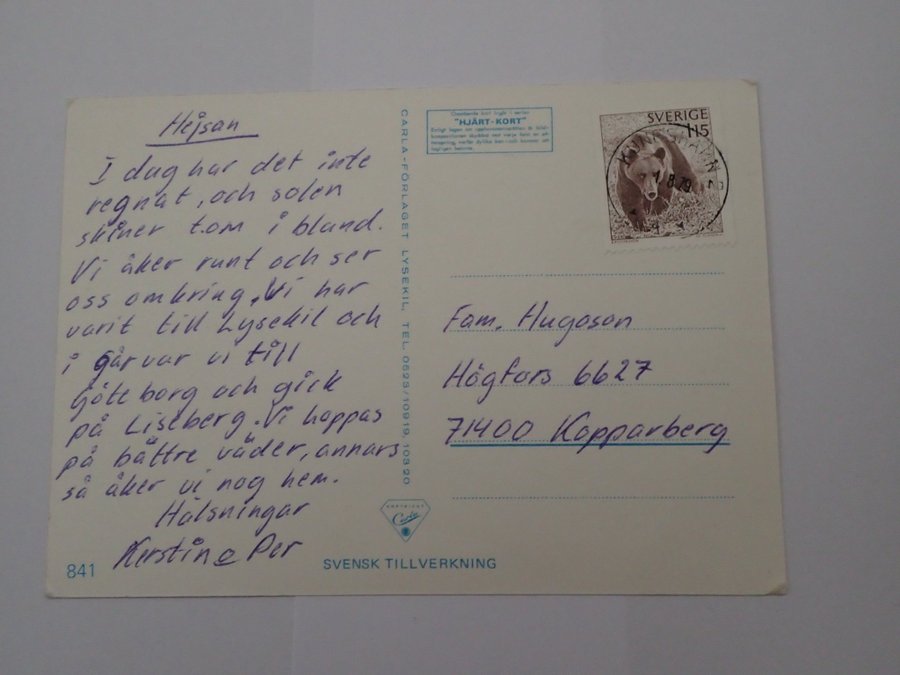 Hejsan
I dag har det inte
regnat, och solen
skiner t.om i bland.
Vi åker runt och ser
oss omkring. Vi har
varit till Lysekil och
i går var vi till
Göteborg och gick
på Liseberg. Vi hoppas
på bättre väder, annars
så åker vi nog hem.
Hälsningar
Kerstin o Per
841
CARLA-FÖRLAGET LYSEKIL, TEL. 0523/10919, 10320
"HJÄRT-KORT"
SVERIGE
115
KUNGSHAMN
1.8.79
Fam. Hugoson
Högfors 6627
71400 Kopparberg
Carla
SVENSK TILLVERKNING